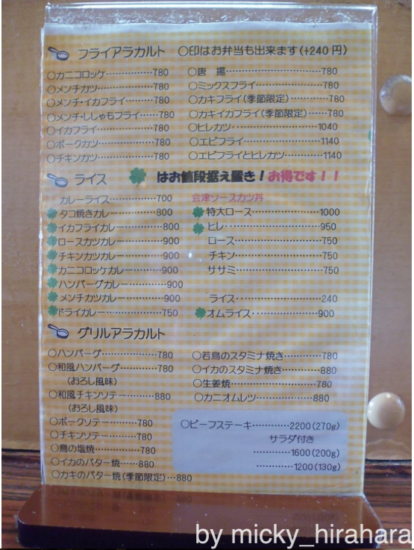 フライアラカルト ○印はお弁当も出来ます(+240円)
○カニコロッケ……………780
○メンチカツ………………780
○メンチ・イカフライ……780
○メンチ・ししゃもフライ…780
○イカフライ………………780
○ポークカツ………………780
○チキンカツ………………780
○唐揚………………………780
○ミックスフライ…………780
○カキフライ(季節限定)…780
○カキイカフライ(季節限定)…780
○ヒレカツ…………………1040
○エビフライ………………1140
○エビフライとヒレカツ…1140
ライス はお値段据え置き!お得です!!
カレーライス………………700
タコ焼きカレー……………800
イカフライカレー…………800
ロースカツカレー…………900
チキンカツカレー…………900
カニコロッケカレー………900
ハンバーグカレー…………900
メンチカツカレー…………900
ドライカレー………………750
会津ソースカツ丼
特大ロース…………………1000
ヒレ…………………………950
ロース………………………750
チキン………………………750
ササミ………………………750
ライス………………………240
オムライス…………………900
グリルアラカルト
○ハンバーグ………………780
○和風ハンバーグ…………780
(おろし風味)
○和風チキンソテー………880
(おろし風味)
○ポークソテー……………780
○チキンソテー……………780
○鳥の塩焼…………………780
○イカのバター焼…………880
○カキのバター焼(季節限定)…880
○若鳥のスタミナ焼き……780
○イカのスタミナ焼き……880
○生姜焼……………………780
○カニオムレツ……………880
○ビーフステーキ…………2200(270g)
サラダ付き
……………1600(200g)
……………1200(130g)
by micky_hirahara